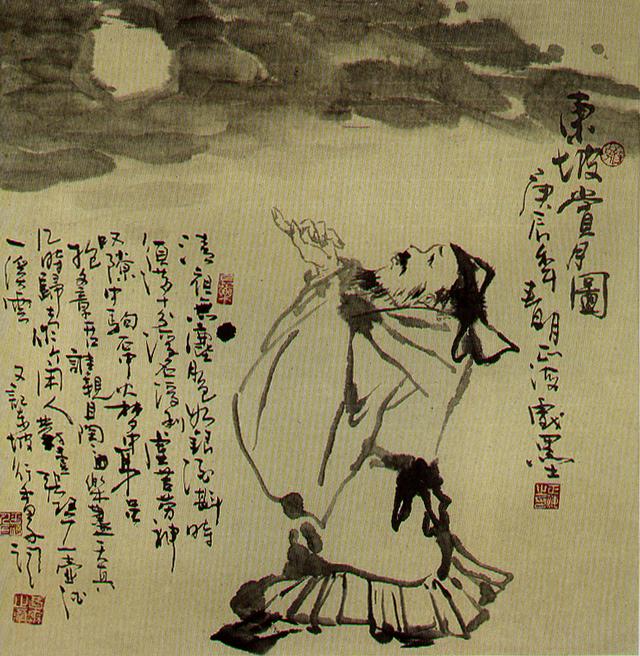 東坡賞月圖
庚辰年春朝正海戲墨
清夜無塵月色如銀酒斟時
須滿十分浮名浮利虛苦勞神
嘆隙中駒石中火夢中身虽
抱文章開口誰親且陶陶樂盡天真
几時歸去作个閑人對一張琴一壺酒
一溪雲 又記東坡行香子